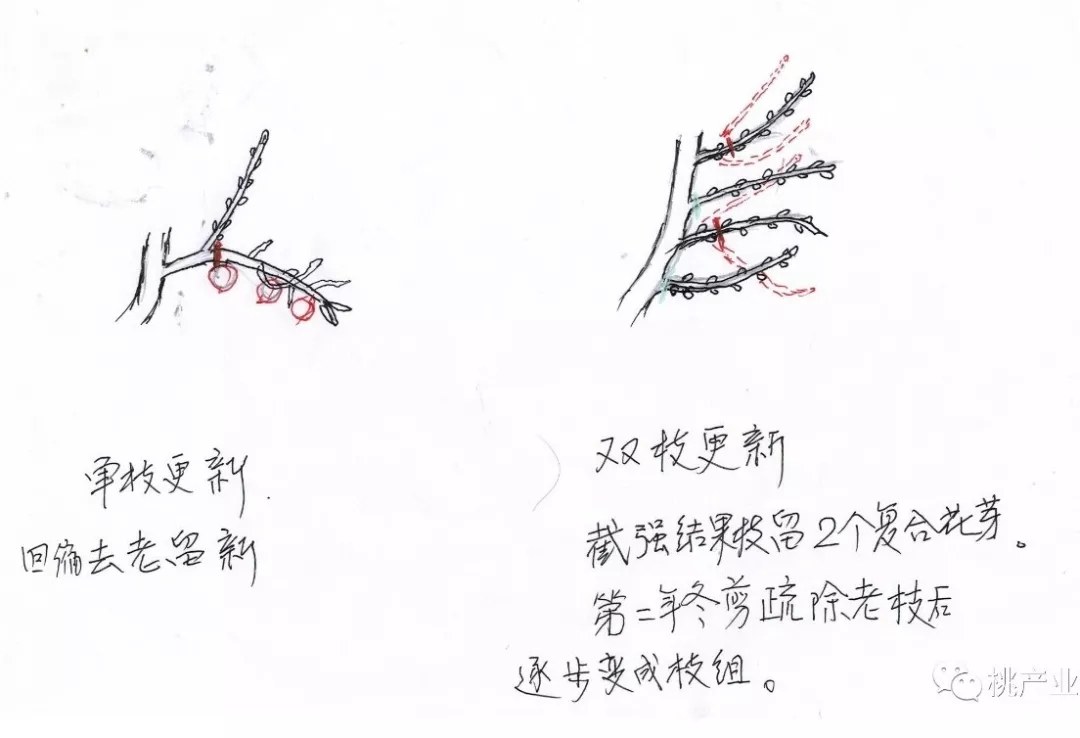 单枝更新.
回缩去老留新
双枝更新
截强结果枝留2个复合花芽。
第二年冬剪疏除老枝后
逐步变成枝组。
桃产业